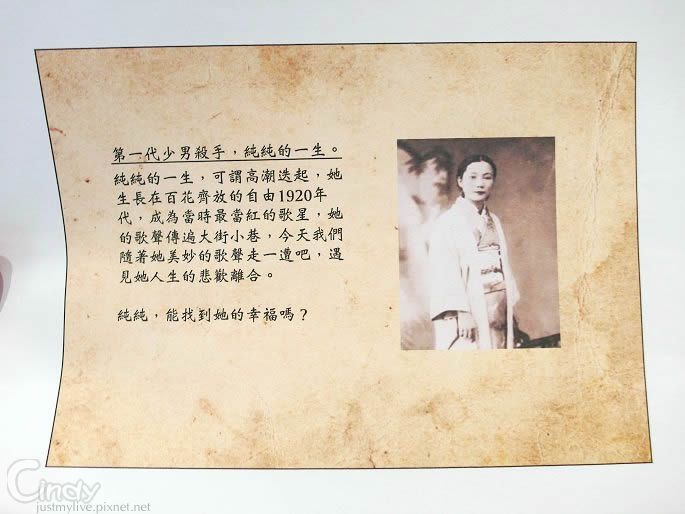 第一代少男殺手，純純的一生。
純純的一生，可謂高潮迭起，她
生長在百花齊放的自由1920年
代，成為當時最當紅的歌星，她
的歌聲傳遍大街小巷，今天我們
隨著她美妙的歌聲走一遭吧，遇
見她人生的悲歡離合。
純純，能找到她的幸福嗎？
Cindy
justmylive.pixnet.net